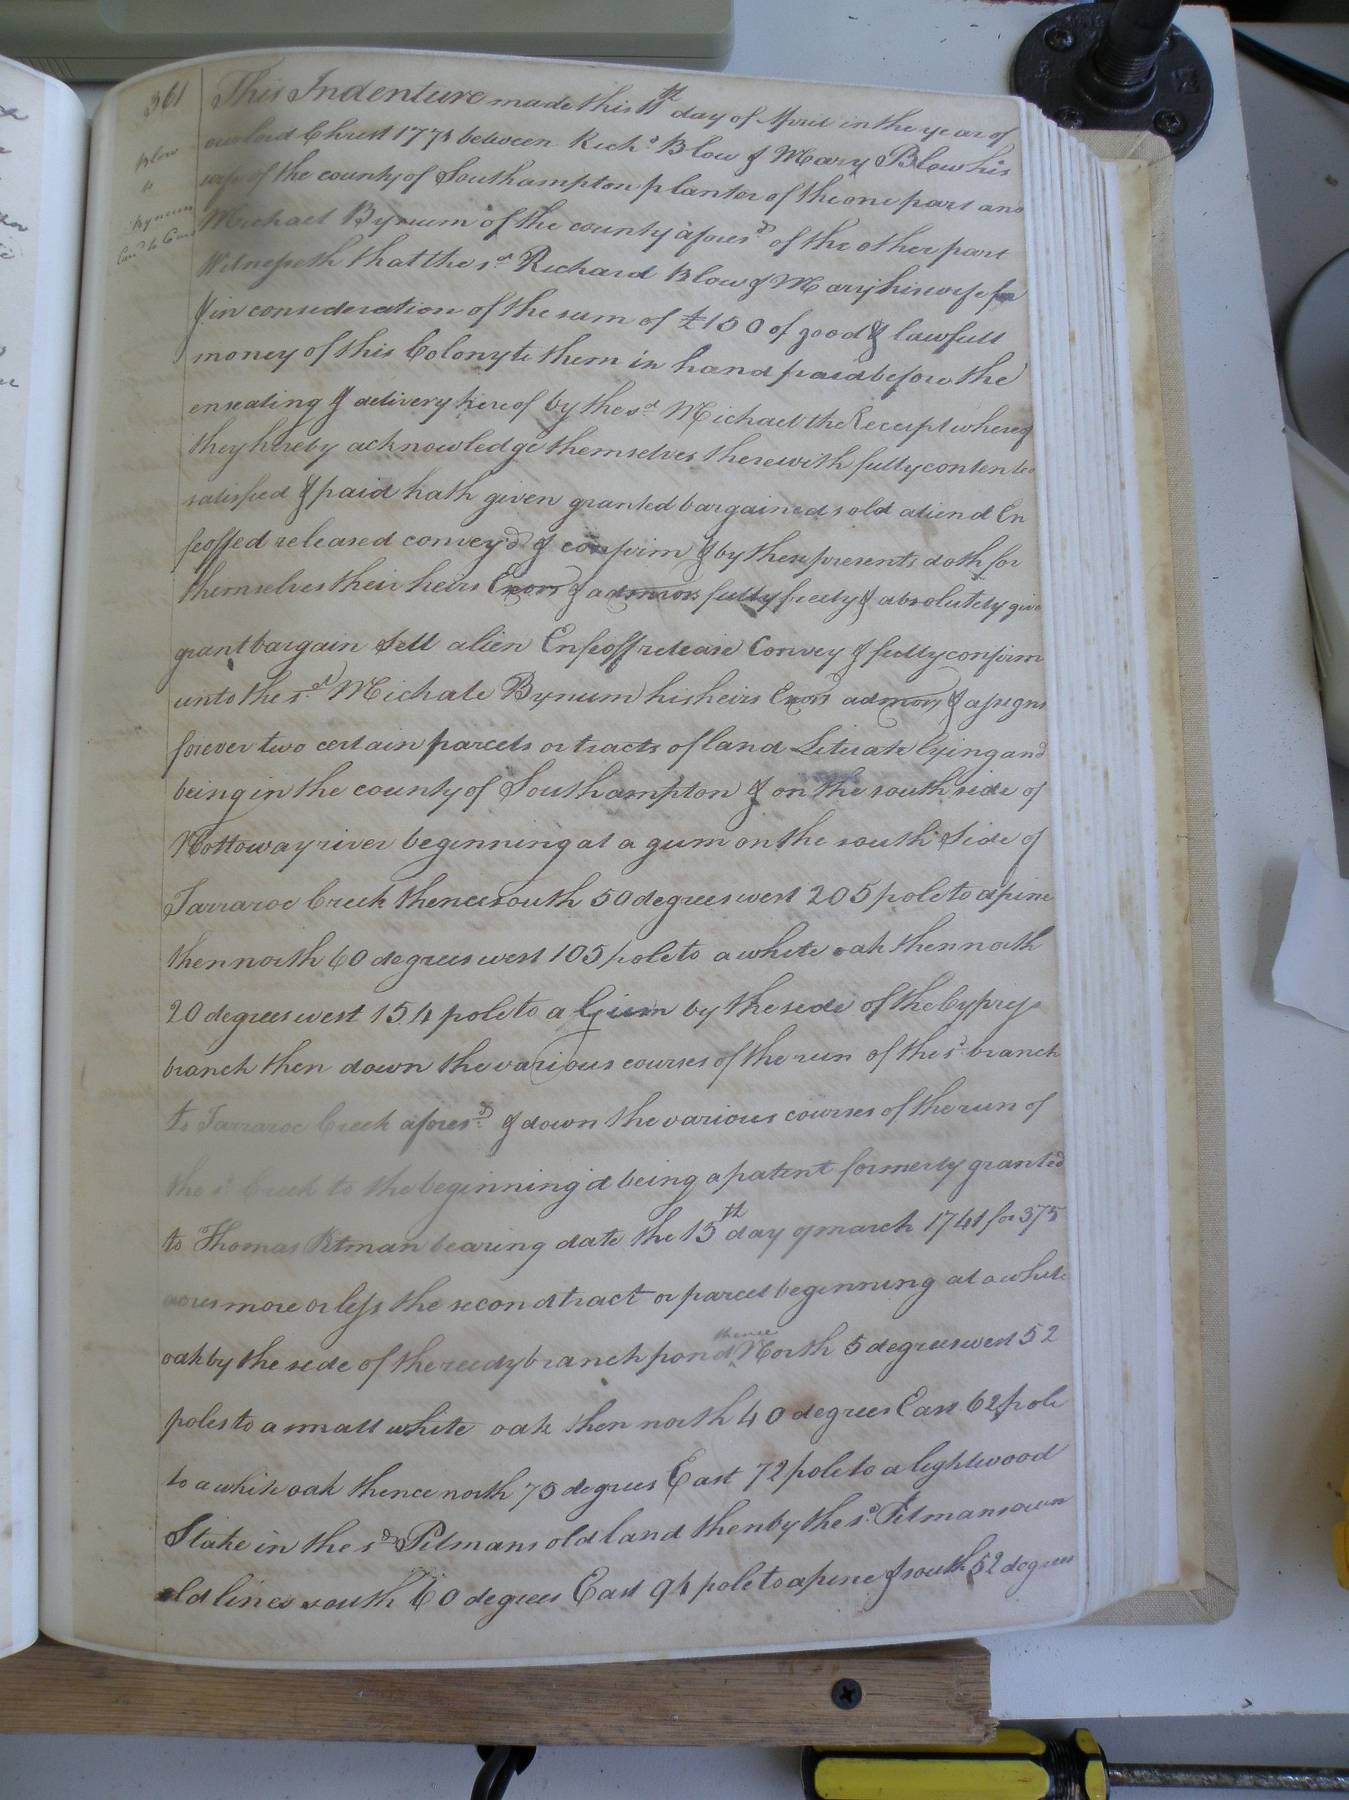 361
Blow
to
Bynum
This Indenture made this day of April in the year of
our lord Christ 1774 between Rich.d Blow & Mary Blow his
wife of the county of Southampton planter of the one part and
Michael Bynum of the county afores.d of the other part
Witnesseth that the s.d Richard Blow & Mary his wife for
& in consideration of the sum of £150 of good & lawfull
money of this Colony to them in hand paid before the
ensealing & delivery hereof by the s.d Michael the Receipt whereof
they hereby acknowledge themselves therewith fully contented
satisfied & paid hath given granted bargained sold aliend En
feoffed released convey'd & confirm & by these presents doth for
themselves their heirs Exors & admors fully freely & absolutely give
grant bargain Sell alien Enfeoff release Convey & fully confirm
unto the s.d Michale Bynum his heirs Exors admors & assigns
forever two certain parcels or tracts of land Situate lying and
being in the county of Southampton & on the south side of
Nottoway river beginning at a gum on the south Side of
Tarraroe Creek thence south 50 degrees west 205 pole to a pine
then north 60 degrees west 105 pole to a white oak then north
20 degrees west 154 pole to a Gum by the side of the Cypress
branch then down the various courses of the run of the s.d branch
to Tarraroe Creek afores.d & down the various courses of the run of
the s.d Creek to the beginning & being a patent formerly granted
to Thomas Pitman bearing date the 15th day of march 1741 for 375
acres more or less the second tract or parcel beginning at a white
oak by the side of the reedy branch pond thence North 5 degrees west 52
poles to a small white oak then north 40 degrees East 62 pole
to a white oak thence north 75 degrees East 72 pole to a lightwood
Stake in the s.d Pitmans old land then by the s.d Pitmans own
old lines south 60 degrees East 94 pole to a pine & south 52 degrees